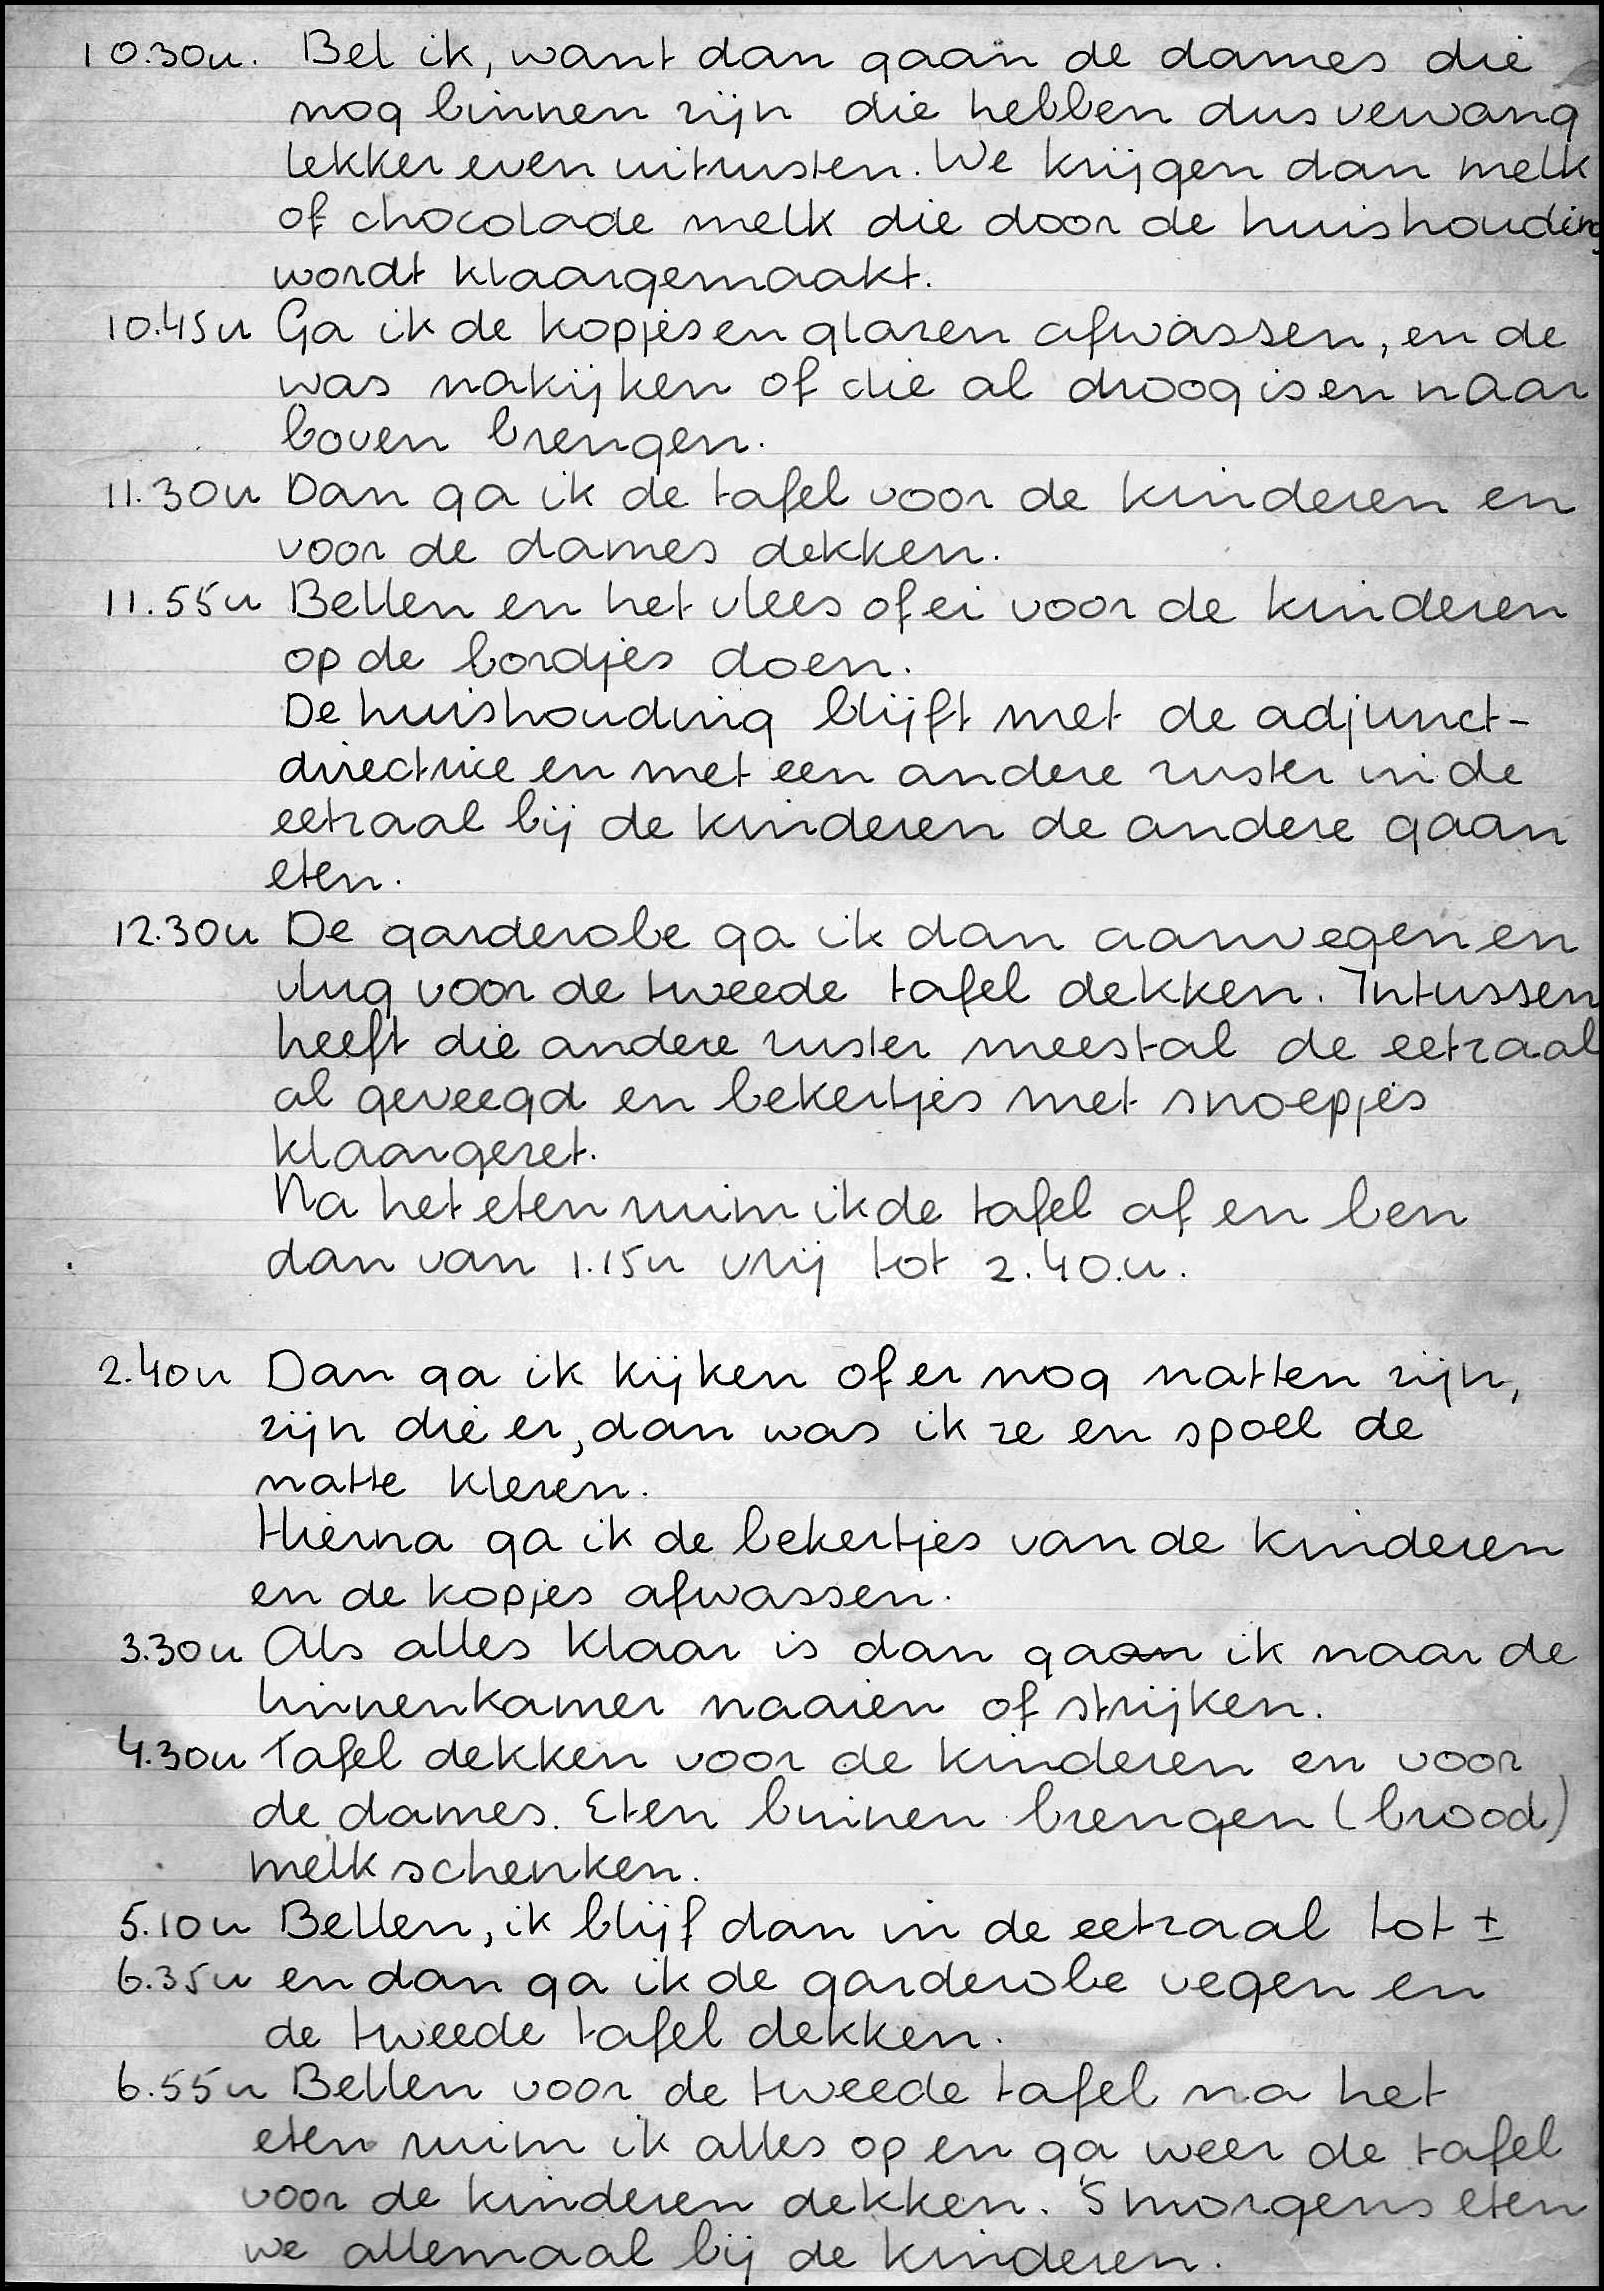 10.30u. Bel ik, want dan gaan de dames die
nog binnen zijn die hebben dus vervang
lekker even uitrusten. We krijgen dan melk
of chocolade melk die door de huishouding
wordt klaargemaakt.
10.45u Ga ik de kopjes en glazen afwassen, en de
was nakijken of die al droog is en naar
boven brengen.
11.30u Dan ga ik de tafel voor de kinderen en
voor de dames dekken.
11.55u Bellen en het vlees of ei voor de kinderen
op de bordjes doen.
De huishouding blijft met de adjunct-
directrice en met een andere zuster in de
eetzaal bij de kinderen de andere gaan
eten.
12.30u De garderobe ga ik dan aanvegen en
vlug voor de tweede tafel dekken. Intussen
heeft die andere zuster meestal de eetzaal
al geveegd en bekertjes met snoepjes
klaargezet.
Na het eten ruim ik de tafel af en ben
dan van 1.15u vrij tot 2.40.u.
2.40u Dan ga ik kijken of er nog natten zijn,
zijn die er, dan was ik ze en spoel de
natte kleren.
Hierna ga ik de bekertjes van de kinderen
en de kopjes afwassen.
3.30u Als alles klaar is dan gaan ik naar de
linnenkamer naaien of strijken.
4.30u Tafel dekken voor de kinderen en voor
de dames. Eten binnen brengen (brood)
melk schenken.
5.10u Bellen, ik blijf dan in de eetzaal tot ±
6.35u en dan ga ik de garderobe vegen en
de tweede tafel dekken.
6.55u Bellen voor de tweede tafel na het
eten ruim ik alles op en ga weer de tafel
voor de kinderen dekken. 'S morgens eten
we allemaal bij de kinderen.